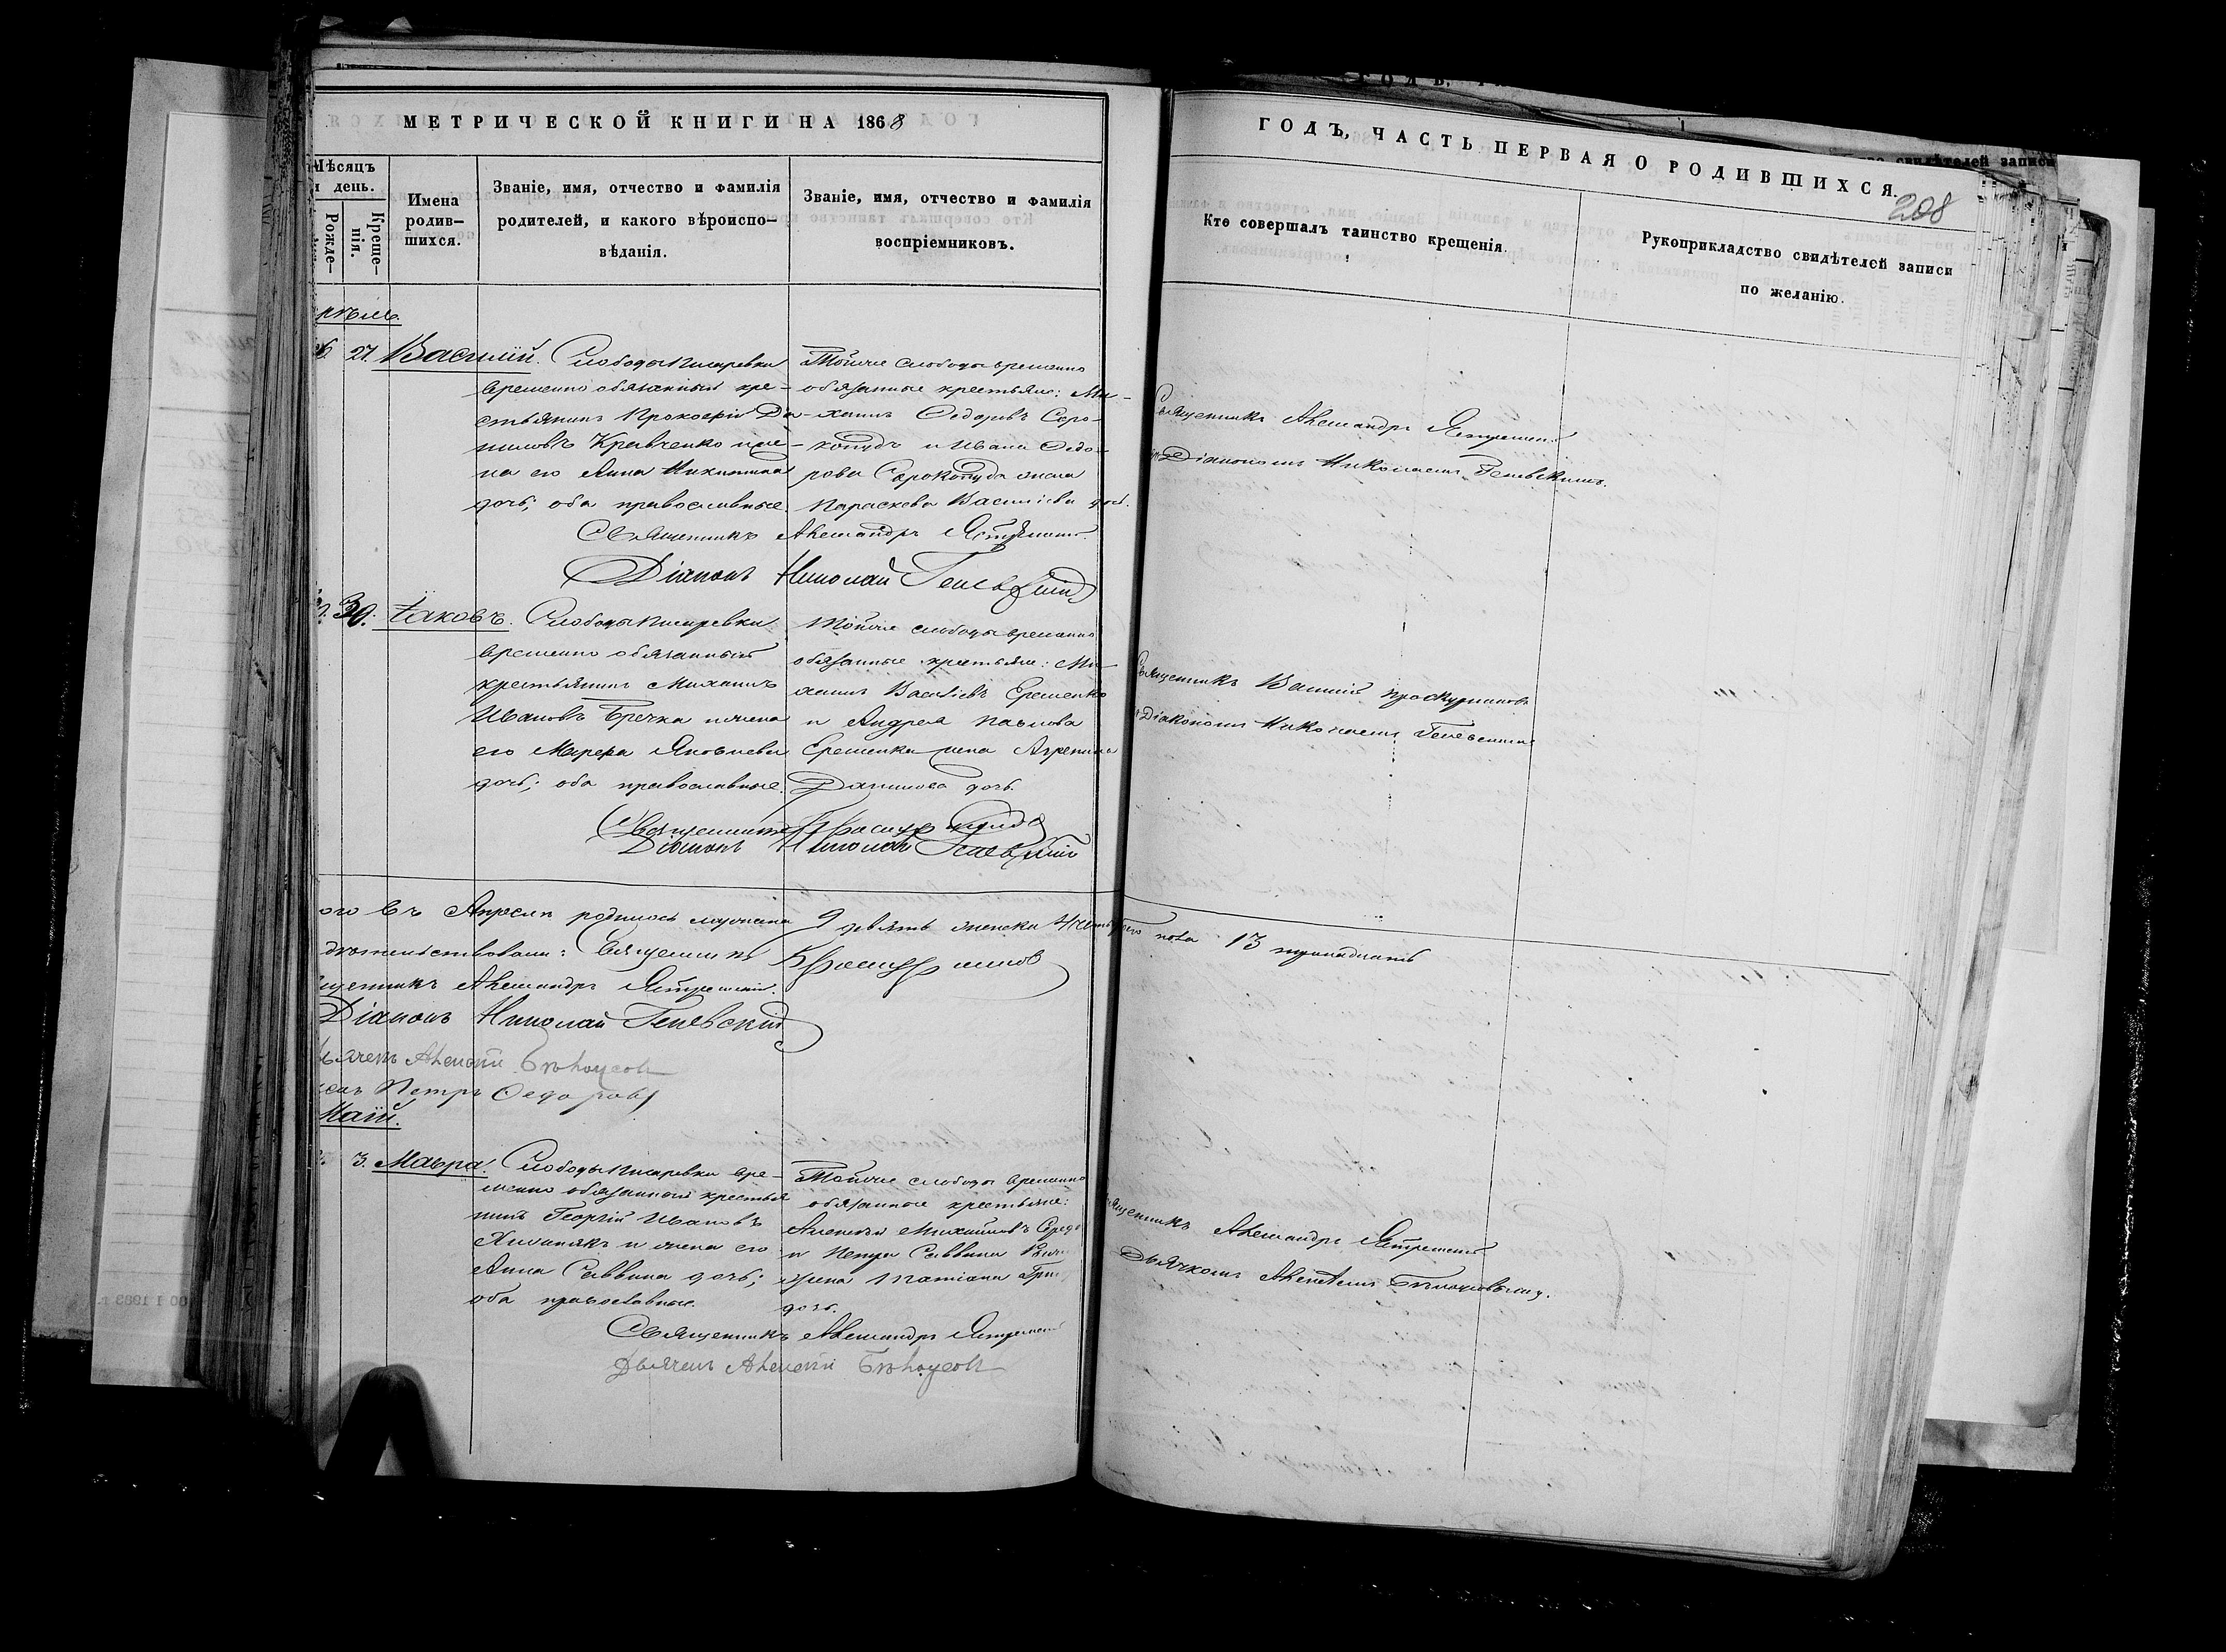 МЕТРИЧЕСКОЙ КНИГИ НА 1868
ГОДЪ, ЧАСТЬ ПЕРВАЯ О РОДИВШИХСЯ.
208
Мѣсяцъ
и день.
Рожде-
Креще-
нія.
Имена
родив-
шихся.
Званіе, имя, отчество и фамилія
родителей, и какого вѣроиспо-
вѣданія.
Званіе, имя, отчество и фамилія
воспріемниковъ.
Кто совершалъ таинство крещенія.
Рукоприкладство свидѣтелей записи
по желанію.
27. Василій. Слободы Писаревки
временно обязанный кре-
стьянинъ Прокофій Да-
ниловъ Кравченко и же-
на его Анна Никитина
дочь; оба православные.
Тойже слободы временно
обязанные крестьяне: Ми-
хаилъ Федоровъ Соро-
копудъ и Ивана Федо-
рова Сорокопуда жена
Параскева Василіева дочь.
Священникъ Александръ
Діаконъ Николай Геневскій
Священникъ Александръ
Діакономъ Николаемъ Геневскимъ.
30. Іаковъ. Слободы Писаревки
временно обязанный
крестьянинъ Михаилъ
Ивановъ Гречка и жена
его Марфа Яковлева
дочь; оба православные.
Тойже слободы временно
обязанные крестьяне: Ми-
хаилъ Василіевъ Ерешенко
и Андрея Павлова
Ерешенка жена Агрепина
Данилова дочь.
Священникъ
Діаконъ Николай Геневскій
Священникъ Василій Проскурниковъ
Діакономъ Николаемъ Геневскимъ
въ Апрелѣ родилось мужеска 9 девять женска 4 четыре обоего пола 13 тринадцать
Священникъ
Александръ
Діаконъ Николай Геневскій
Алексѣй Бѣлоусовъ
Петръ Федоровъ
Май.
3. Мавра. Слободы Писаревки вре-
менно обязанный крестья
нинъ Георгій Ивановъ
и жена его
Анна Саввина дочь;
оба православные.
Тойже слободы временно
обязанные крестьяне:
Алексѣй Михайловъ
и Петра Саввина
жена Татіана
дочь.
Священникъ Александръ
Дьячекъ Алексѣй Бѣлоусовъ
Александръ
Дьячкомъ Алексѣемъ Бѣлоусовымъ.